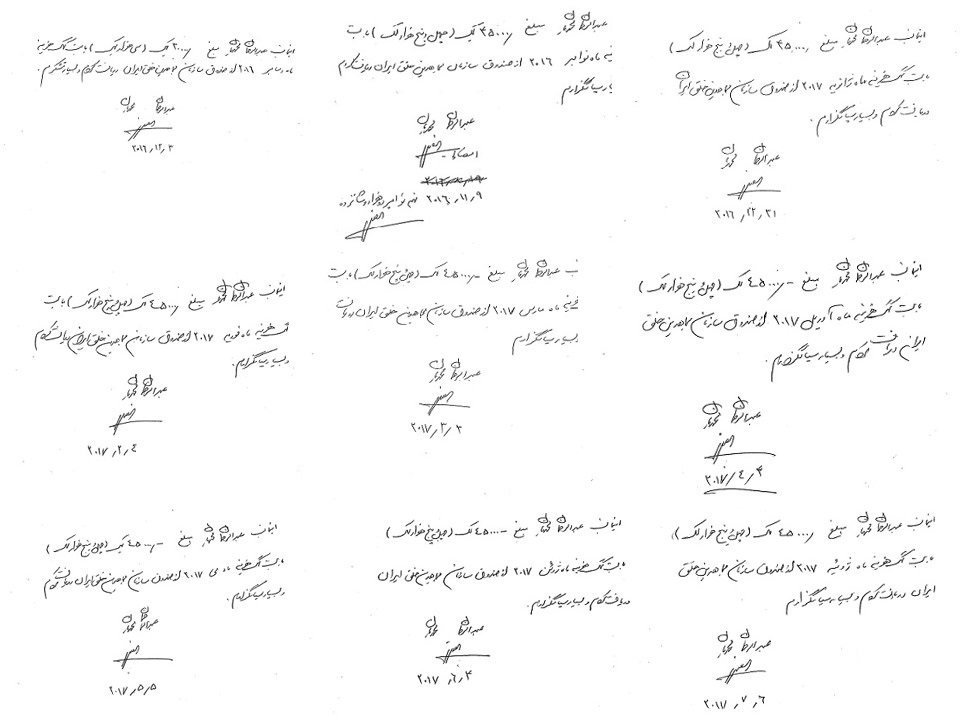 اینجانب عبدالرضا مبلغ ۴۵۰۰۰ لک (چهل و پنج هزار لک)
بابت کمک هزینه ماه ژانویه ۲۰۱۷ از صندوق سازمان مجاهدین خلق ایران
دریافت کردم و بسیار سپاسگزارم.
عبدالرضا
۲۰۱۶٫۱۲٫۳۱
عبدالرضا مبلغ ۴۵۰۰۰ لک (چهل و پنج هزار لک) بابت
نه ماه نوامبر ۲۰۱۶ از صندوق سازمان مجاهدین خلق ایران دریافت کردم
یار سپاسگزارم
عبدالرضا
امضاء
۲۰۱۶٫۱۱٫۹ نهم نوامبر دوهزار و شانزده
اینجانب عبدالرضا مبلغ ۳۰۰۰۰ لک (سی هزار لک) بابت کمک هزینه
ماه دسامبر ۲۰۱۶ از صندوق سازمان مجاهدین خلق ایران دریافت کردم و سپاسگزارم.
عبدالرضا
۲۰۱۶٫۱۲٫۳
اینجانب عبدالرضا مبلغ ۴۵۰۰۰ لک (چهل و پنج هزار لک)
بابت کمک هزینه ماه آوریل ۲۰۱۷ از صندوق سازمان مجاهدین خلق
ایران دریافت کردم و بسیار سپاسگزارم.
عبدالرضا
۲۰۱۷٫۴٫۴
ب عبدالرضا مبلغ ۴۵۰۰۰ لک (چهل و پنج هزار لک) بابت
هزینه ماه مارس ۲۰۱۷ از صندوق سازمان مجاهدین خلق ایران دریافت
بسیار سپاسگزارم
عبدالرضا
۲۰۱۷٫۳٫۳
اینجانب عبدالرضا مبلغ ۴۵۰۰۰ لک (چهل و پنج هزار لک) بابت
کمک هزینه ماه فوریه ۲۰۱۷ از صندوق سازمان مجاهدین خلق ایران دریافت کردم
و بسیار سپاسگزارم.
عبدالرضا
۲۰۱۷٫۲٫۴
اینجانب عبدالرضا مبلغ ۴۵۰۰۰ لک (چهل و پنج هزار لک)
بابت کمک هزینه ماه ژوئیه ۲۰۱۷ از صندوق سازمان مجاهدین خلق
ایران دریافت کردم و بسیار سپاسگزارم
عبدالرضا
۲۰۱۷٫۷٫۶
اینجانب عبدالرضا مبلغ ۴۵۰۰۰ لک (چهل و پنج هزار لک)
بابت کمک هزینه ماه ژوئن ۲۰۱۷ از صندوق سازمان مجاهدین خلق ایران
دریافت کردم و بسیار سپاسگزارم.
عبدالرضا
۲۰۱۷٫۶٫۴
اینجانب عبدالرضا مبلغ ۴۵۰۰۰ لک (چهل و پنج هزار لک)
بابت کمک هزینه ماه می ۲۰۱۷ از صندوق سازمان مجاهدین خلق ایران دریافت کردم
و بسیار سپاسگزارم.
عبدالرضا
۲۰۱۷٫۵٫۵